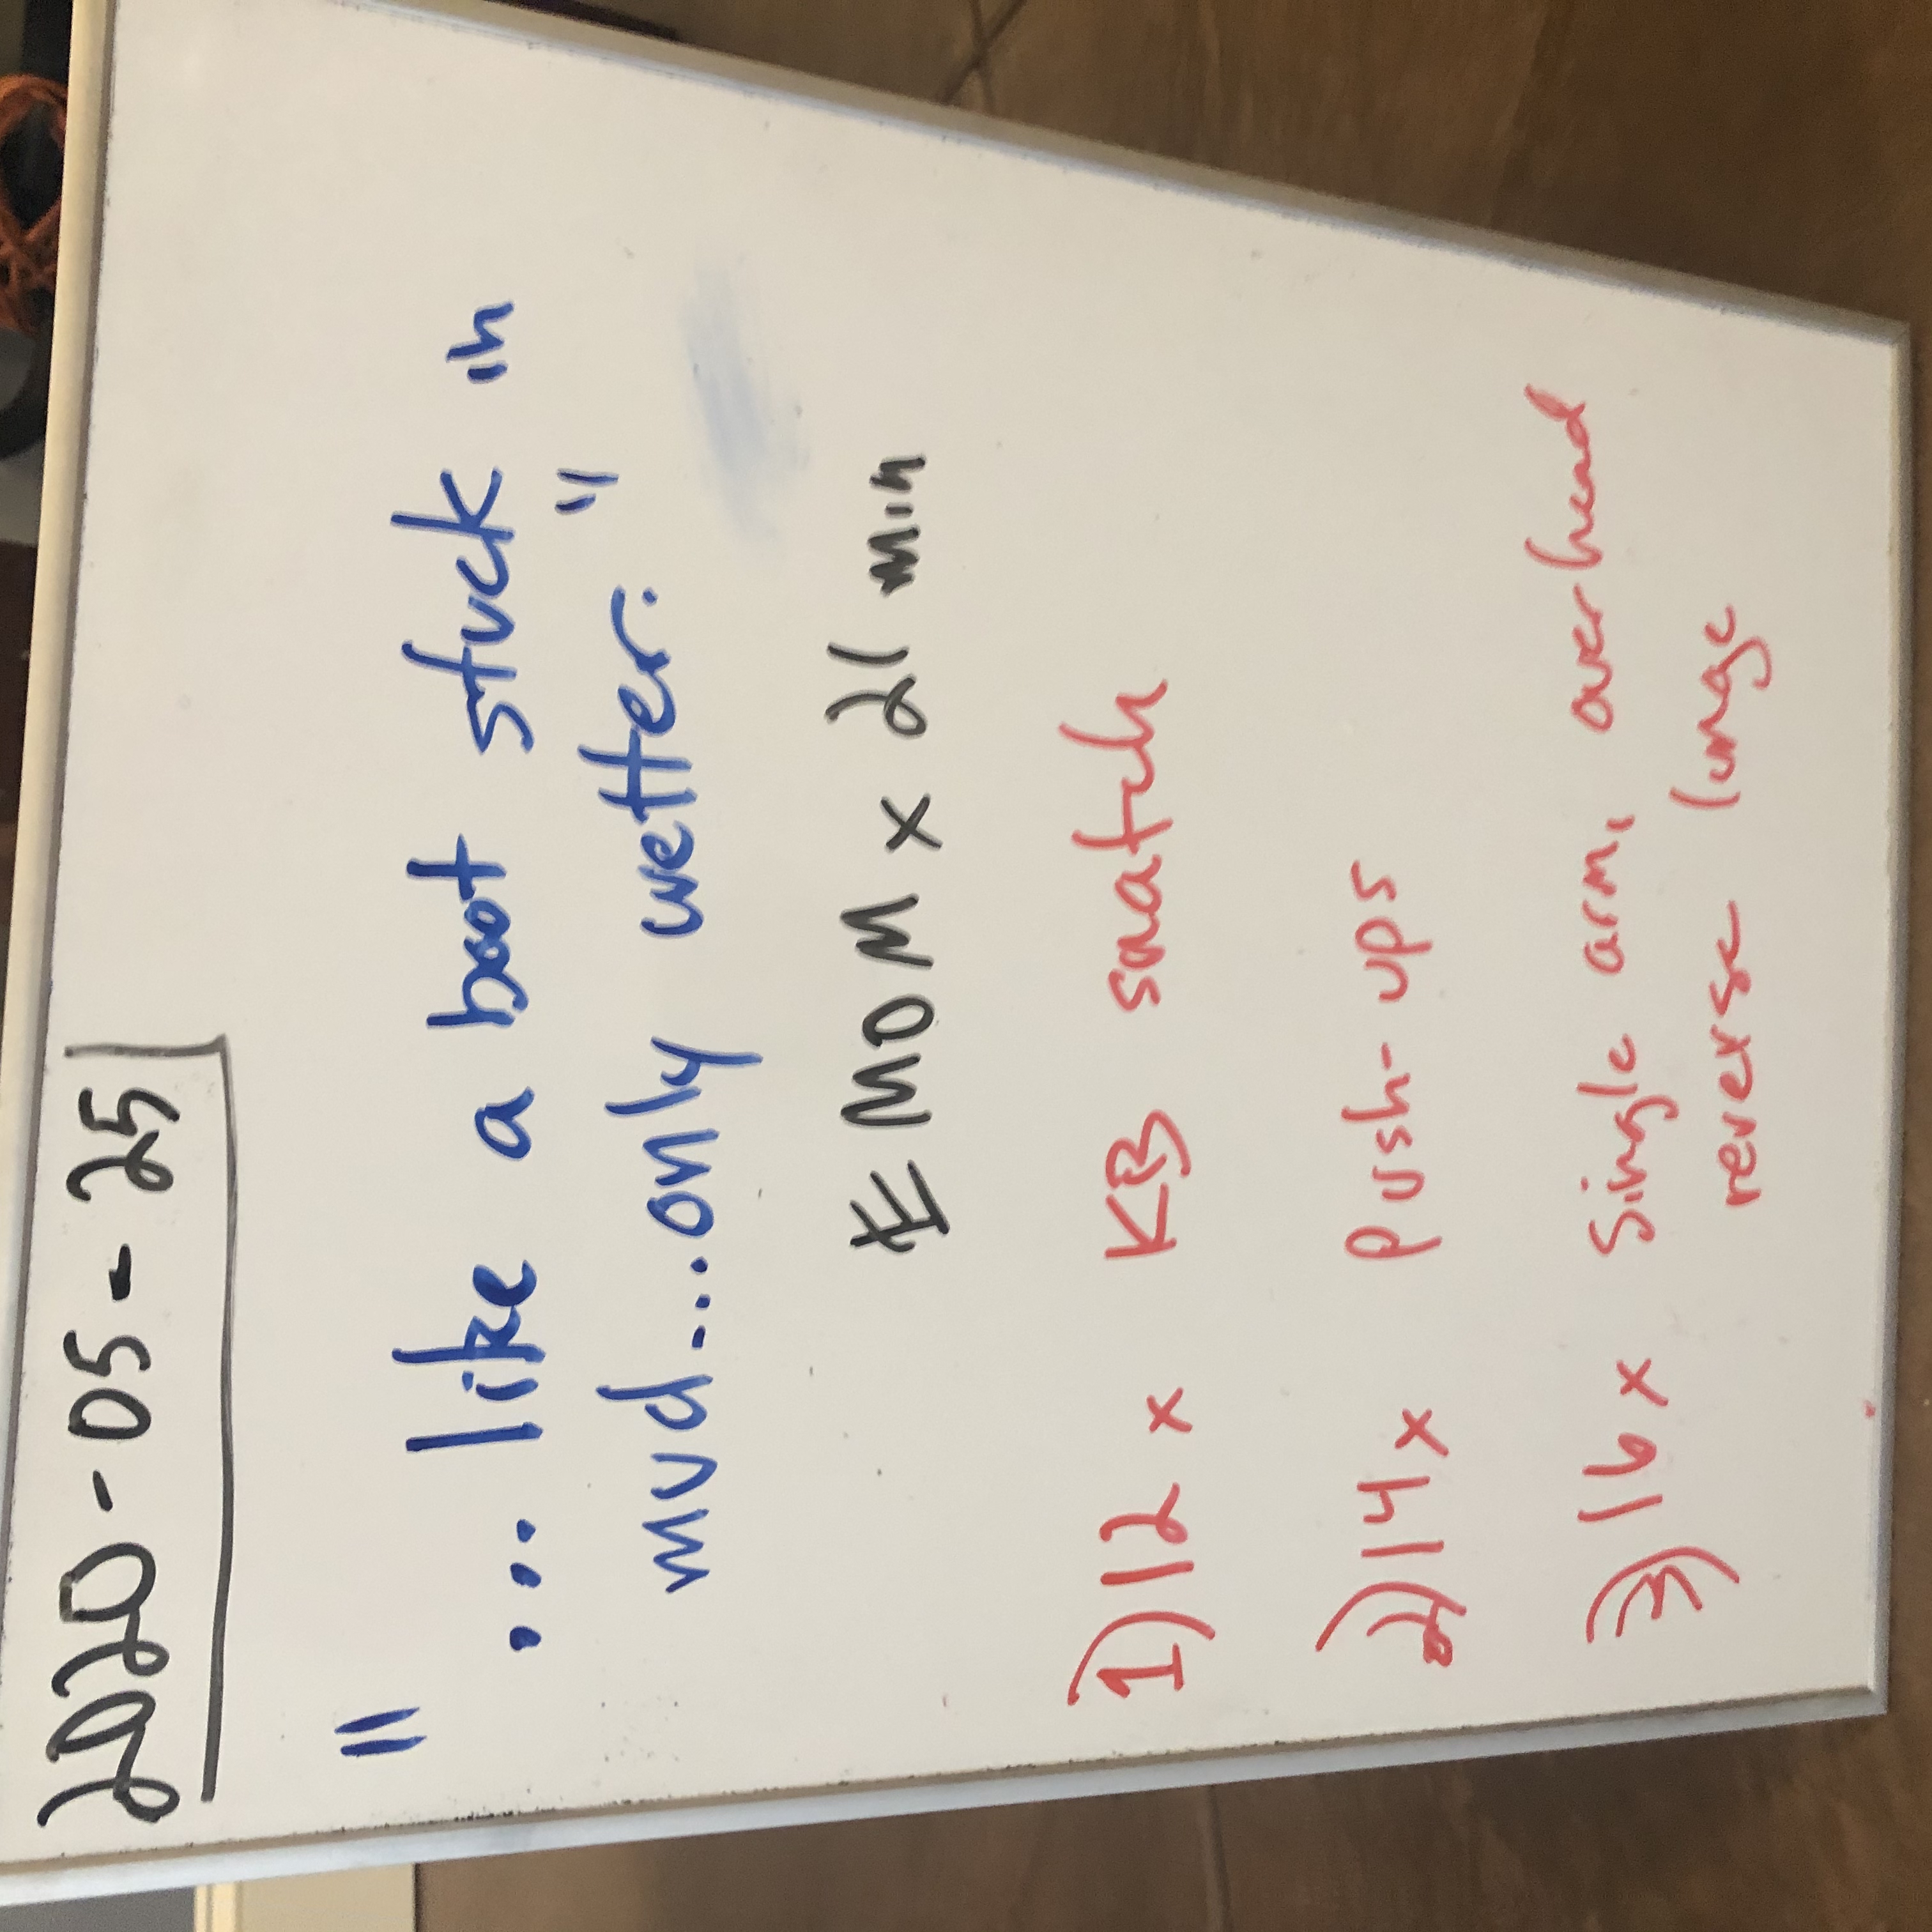 2020-05-25
"
... like a boot stuck in
mud...only wetter."
EMOM x 21 min
1) 12 x KB snatch
2) 14 x Push-ups
3) 16 x Single arm, overhead
reverse lunge